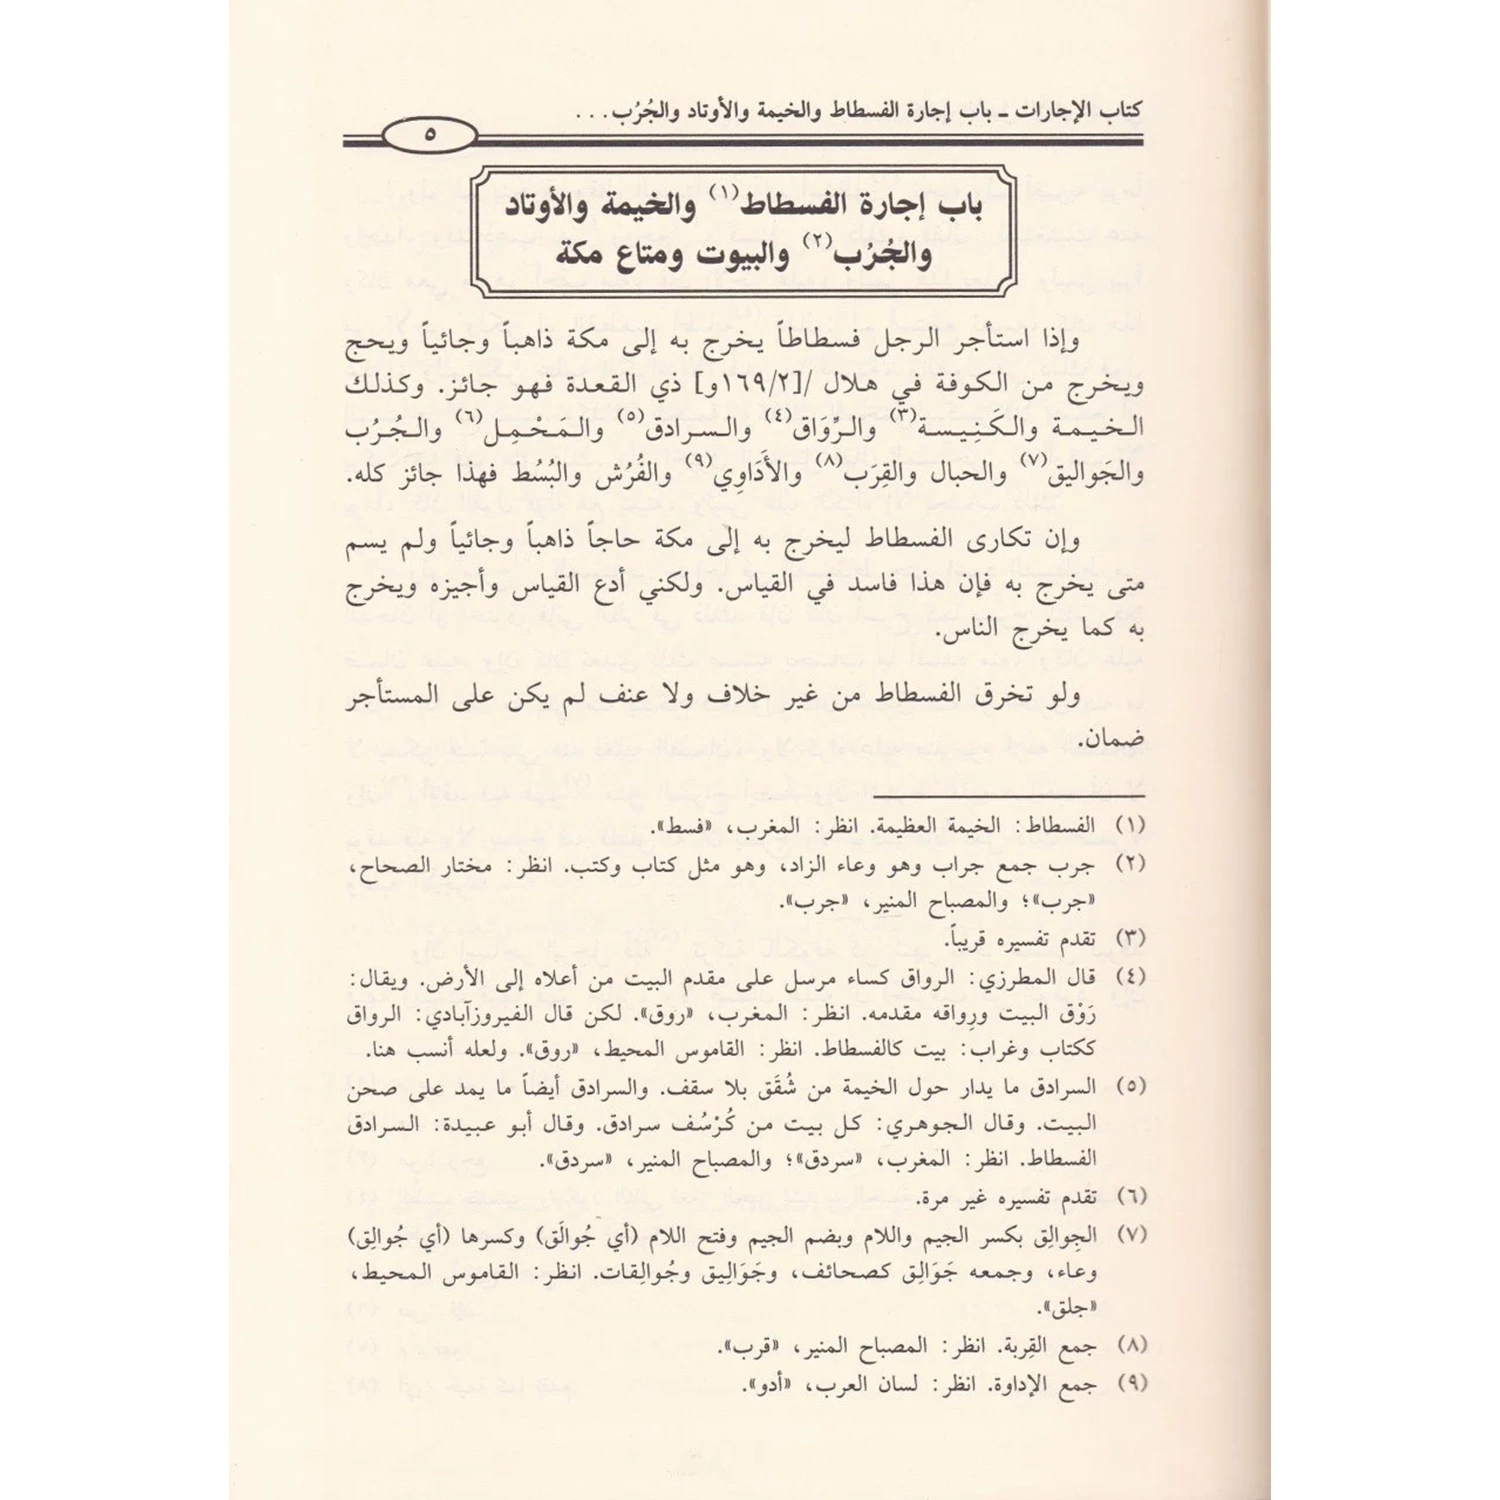 كتاب الإجارات ـ باب إجارة الفسطاط والخيمة والأوتاد والجُرُب...
٥
باب إجارة الفسطاط(١) والخيمة والأوتاد
والجُرُب(٢) والبيوت ومتاع مكة
وإذا استأجر الرجل فسطاطاً يخرج به إلى مكة ذاهباً وجائياً ويحج
ويخرج من الكوفة في هلال /[١٦٩/٢و] ذي القعدة فهو جائز. وكذلك
الخيمة والكَنِيسة(٣) والرِّوَاق(٤) والسرادق(٥) والمَحْمِل(٦) والجُرُب
والجَواليق(٧) والحبال والقِرَب(٨) والأَدَاوِي(٩) والفُرُش والبُسُط فهذا جائز كله.
وإن تكارى الفسطاط ليخرج به إلى مكة حاجاً ذاهباً وجائياً ولم يسم
متى يخرج به فإن هذا فاسد في القياس. ولكني أدع القياس وأجيزه ويخرج
به كما يخرج الناس.
ولو تخرق الفسطاط من غير خلاف ولا عنف لم يكن على المستأجر
ضمان.
(١) الفسطاط: الخيمة العظيمة. انظر: المغرب، «فسط».
(٢) جرب جمع جراب وهو وعاء الزاد، وهو مثل كتاب وكتب. انظر: مختار الصحاح،
«جرب»؛ والمصباح المنير، «جرب».
(٣) تقدم تفسيره قريباً.
(٤) قال المطرزي: الرواق كساء مرسل على مقدم البيت من أعلاه إلى الأرض. ويقال:
رَوْق البيت ورِواقه مقدمه. انظر: المغرب، «روق». لكن قال الفيروزآبادي: الرواق
ككتاب وغراب: بيت كالفسطاط. انظر: القاموس المحيط، «روق». ولعله أنسب هنا.
(٥) السرادق ما يدار حول الخيمة من شُقَق بلا سقف. والسرادق أيضاً ما يمد على صحن
البيت. وقال الجوهري: كل بيت من كُرْسُف سرادق. وقال أبو عبيدة: السرادق
الفسطاط. انظر: المغرب، «سردق»؛ والمصباح المنير، «سردق».
(٦) تقدم تفسيره غير مرة.
(٧) الجِوالِق بكسر الجيم واللام وبضم الجيم وفتح اللام (أي جُوالَق) وكسرها (أي جُوالِق)
وعاء، وجمعه جَوَالِق كصحائف، وجَوَالِيق وجُوالِقات. انظر: القاموس المحيط،
«جلق».
(٨) جمع القِربة. انظر: المصباح المنير، «قرب».
(٩) جمع الإداوة. انظر: لسان العرب، «أدو».